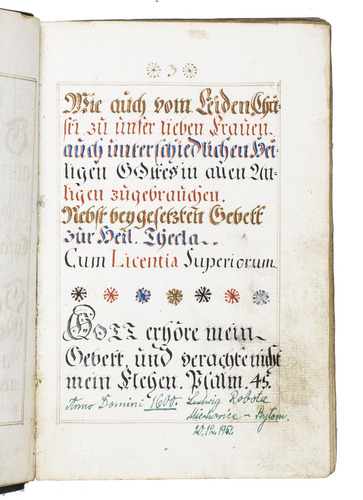 3
Wie auch vom Leiden Chri-
sti zu unser lieben Frauen.
auch unterschiedlichen Hei-
ligen GOttes in allen An-
ligen zugebrauchen.
Nebst beygesetzten Gebett
zur Heil. Thecla.
Cum Licentia Superiorum.
GOTT erhöre mein
Gebett, und verachte nicht
mein Flehen. Psalm. 45.
Anno Domini 1600. Ludwig Robota
Miechowice - Bytom.
20.12.1951.